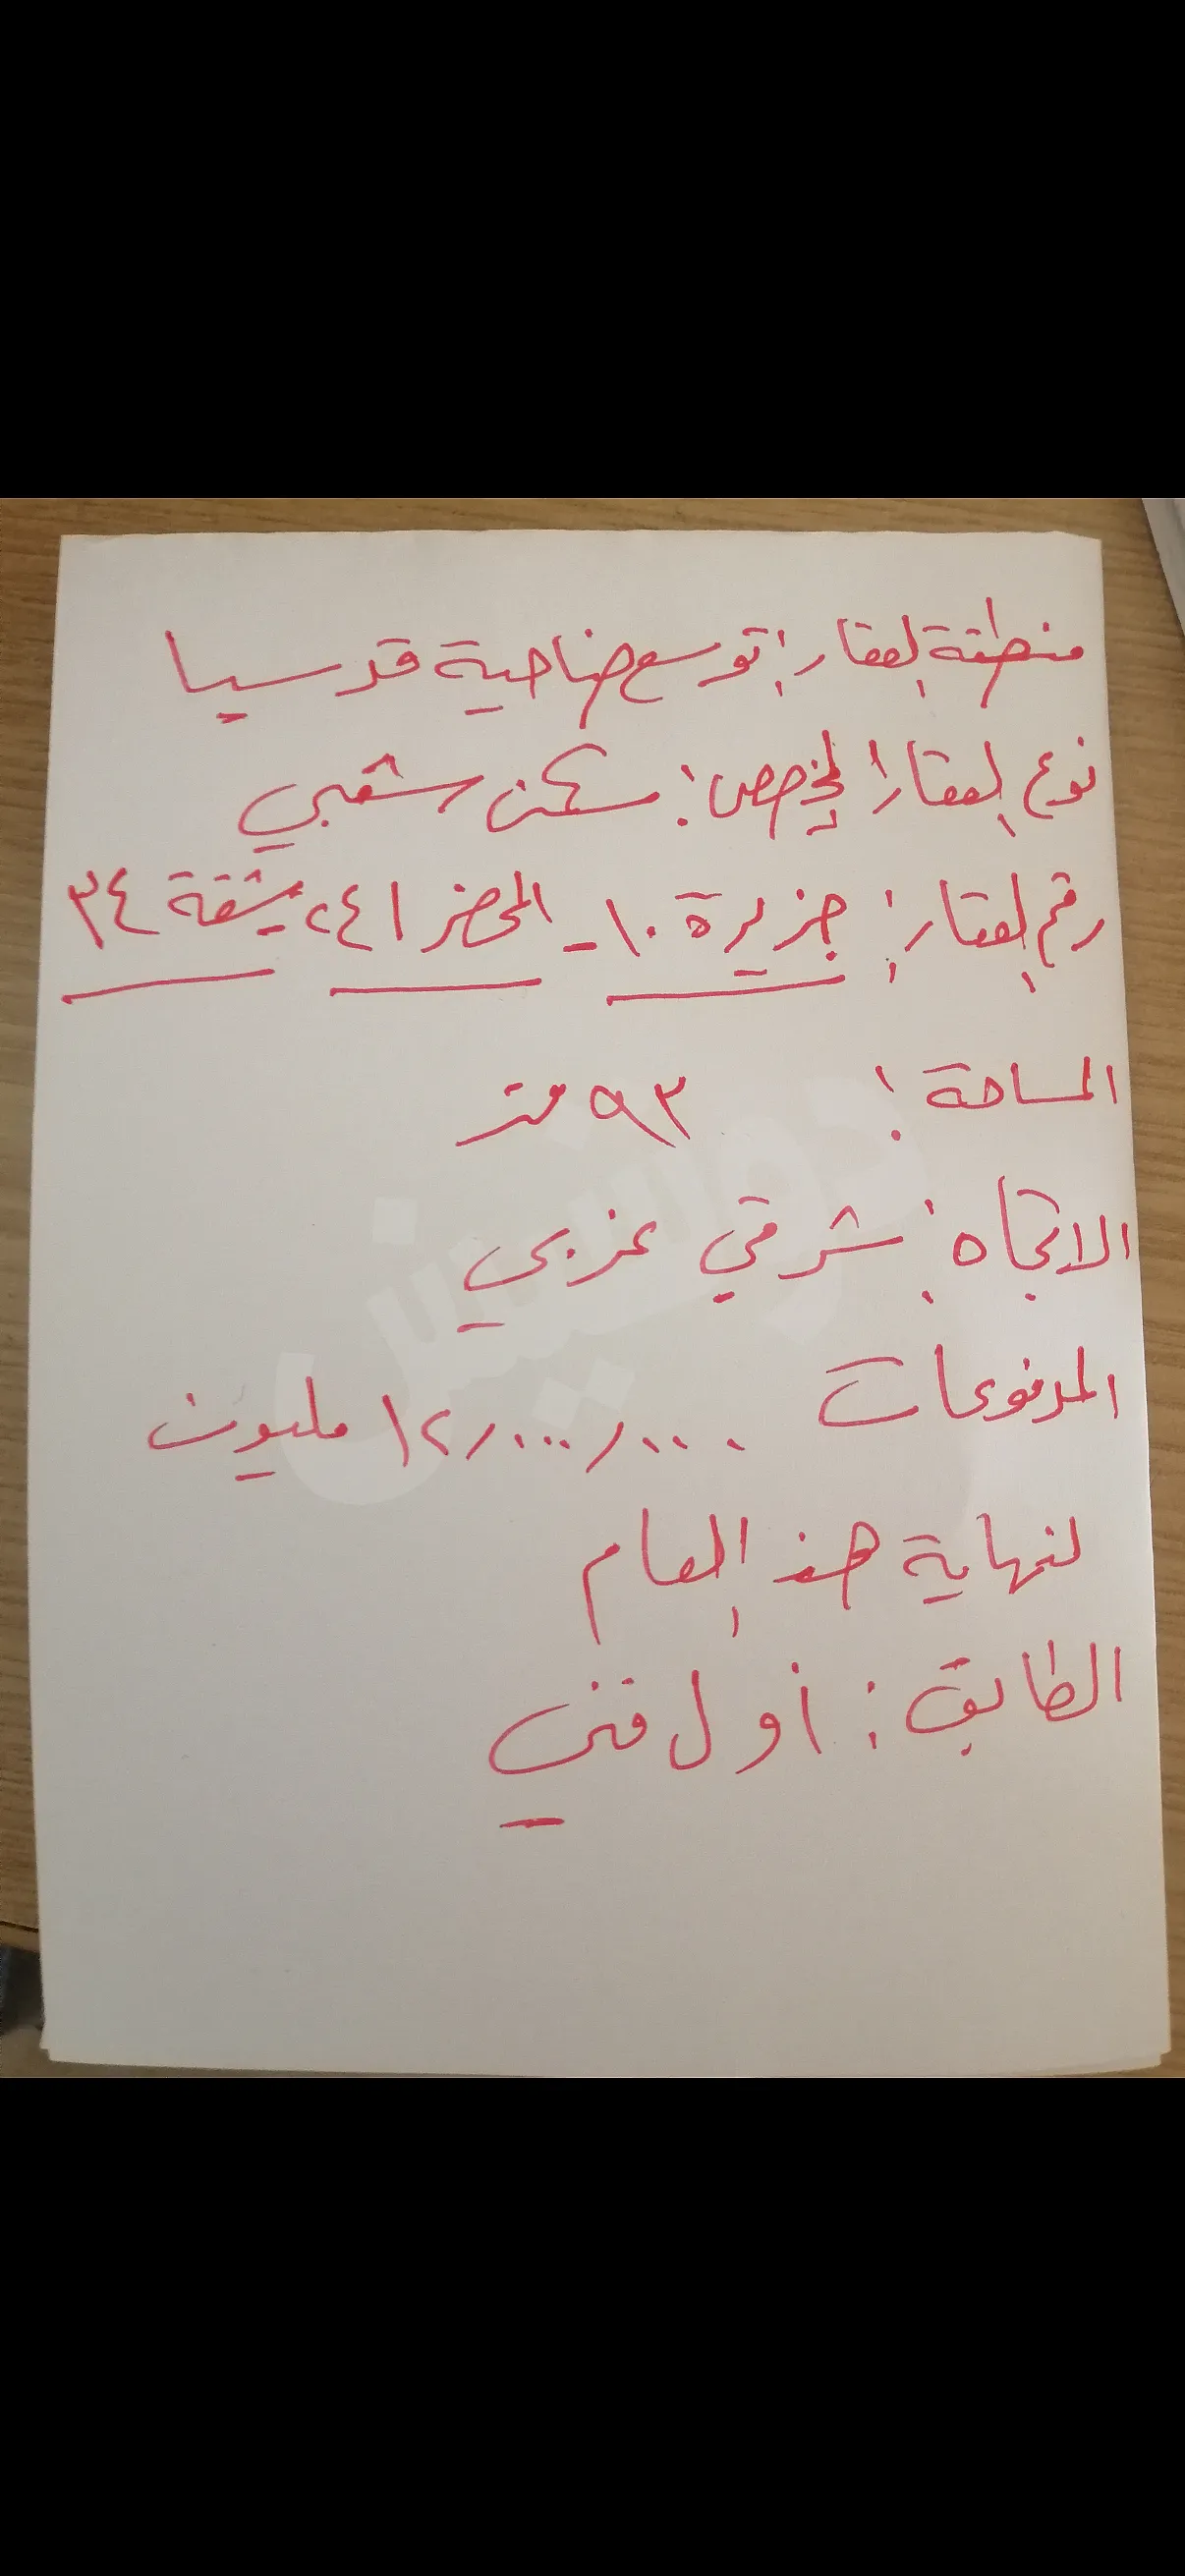 منطقة العقار: توسع ضاحية قدسيا
نوع العقار المخصص: سكن شعبي
رقم العقار: جزيرة ١٠ - المحضر ٢٤١ شقة ٣٤
المساحة: ٩٣ متر
الاتجاه: شرقي غربي
المدفوعات ١٢,٠٠٠,٠٠٠ مليون
لنهاية هذ العام
الطابق: أول فني